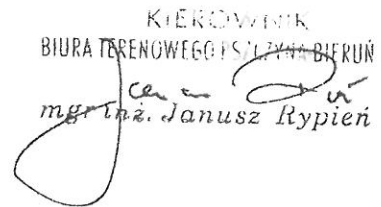 KIEROWNIK
BIURA TERENOWEGO PSZCZYNA-BIERUŃ
mgr inż. Janusz Rypień